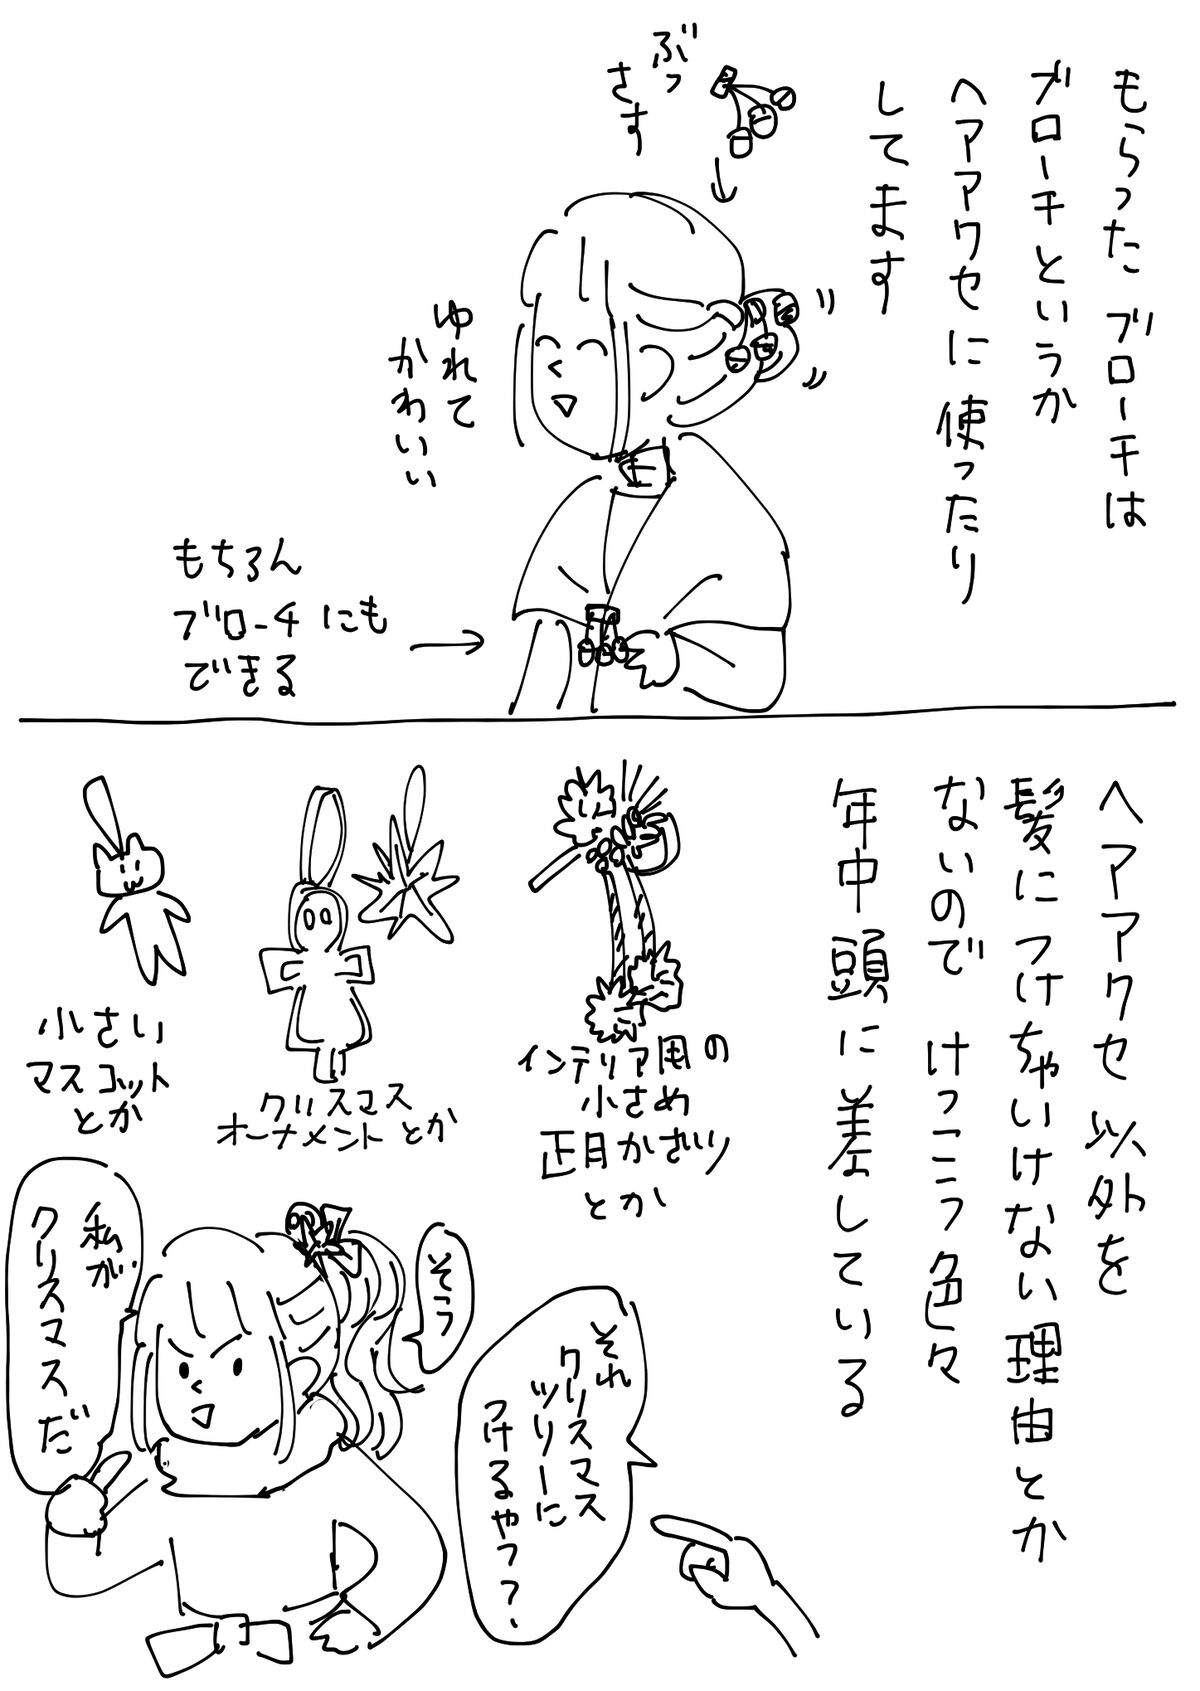 もらったブローチは
ブローチというか
ヘアアクセに使ったり
してます
ぶっ
さす
ゆれて
かわいい
もちろん
ブローチにも
できる
ヘアアクセ以外を
髪につけちゃいけない理由とか
ないので けっこう色々
年中頭に差している
インテリア用の
小さめ
正月かざり
とか
クリスマス
オーナメントとか
小さい
マスコット
とか
それ
クリスマス
ツリーに
つけるやつ?
そう
私が
クリスマスだ